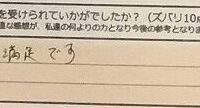 を受けられていかがでしたか？（ズバリ10
直な感想が、私達の何よりの力となり今後の参考となりま
満足です